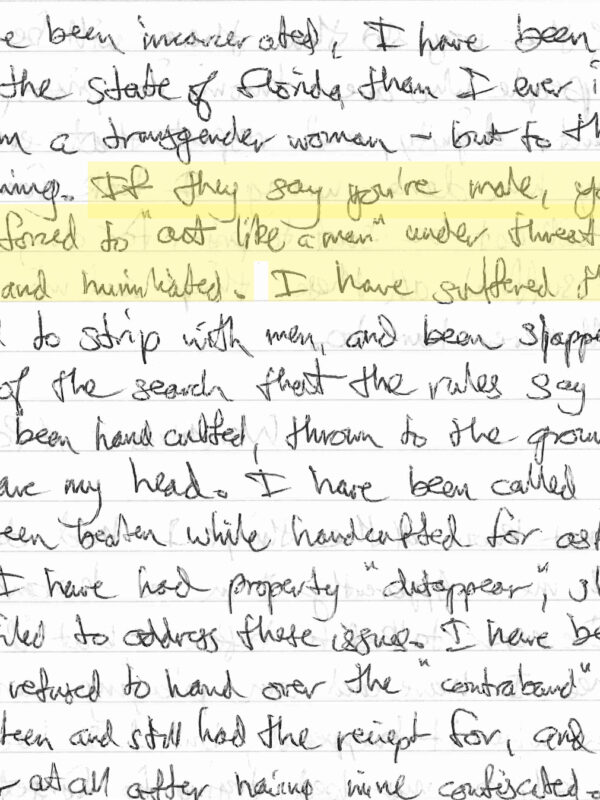 e been incarcerated, I have been
the state of Florida than I ever i
m a transgender woman – but to th
ning. If they say you're male, yo
forced to "act like a man" under threat
and humiliated. I have suffered th
d to strip with men, and been slappe
of the search that the rules say
been handcuffed, thrown to the groun
ave my head. I have been called
een beaten while handcuffed for as
I have had property "disappear", s
iled to address these issues. I have be
refused to hand over the "contraband"
teen and still had the reciept for, and
r at all after having mine confiscated.